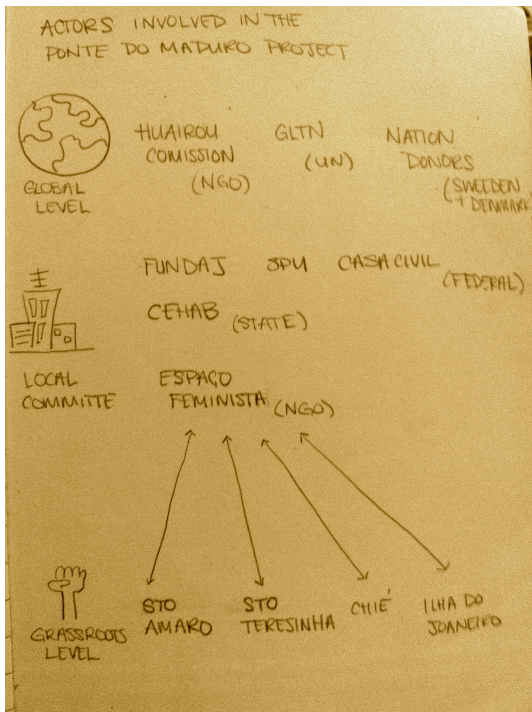 ACTORS INVOLVED IN THE
PONTE DO MADURO PROJECT
GLOBAL
LEVEL
HUAIROU
COMISSION
(NGO)
GLTN
(UN)
NATION
DONORS
(SWEDEN
+ DENMARK)
FUNDAJ SPU CASA CIVIL
(FEDERAL)
CEHAB (STATE)
LOCAL
COMMITTE
ESPAÇO
FEMINISTA (NGO)
GRASSROOTS
LEVEL
STO
AMARO
STO
TERESINHA
CHIÉ
ILHA DO
JOANEIRO